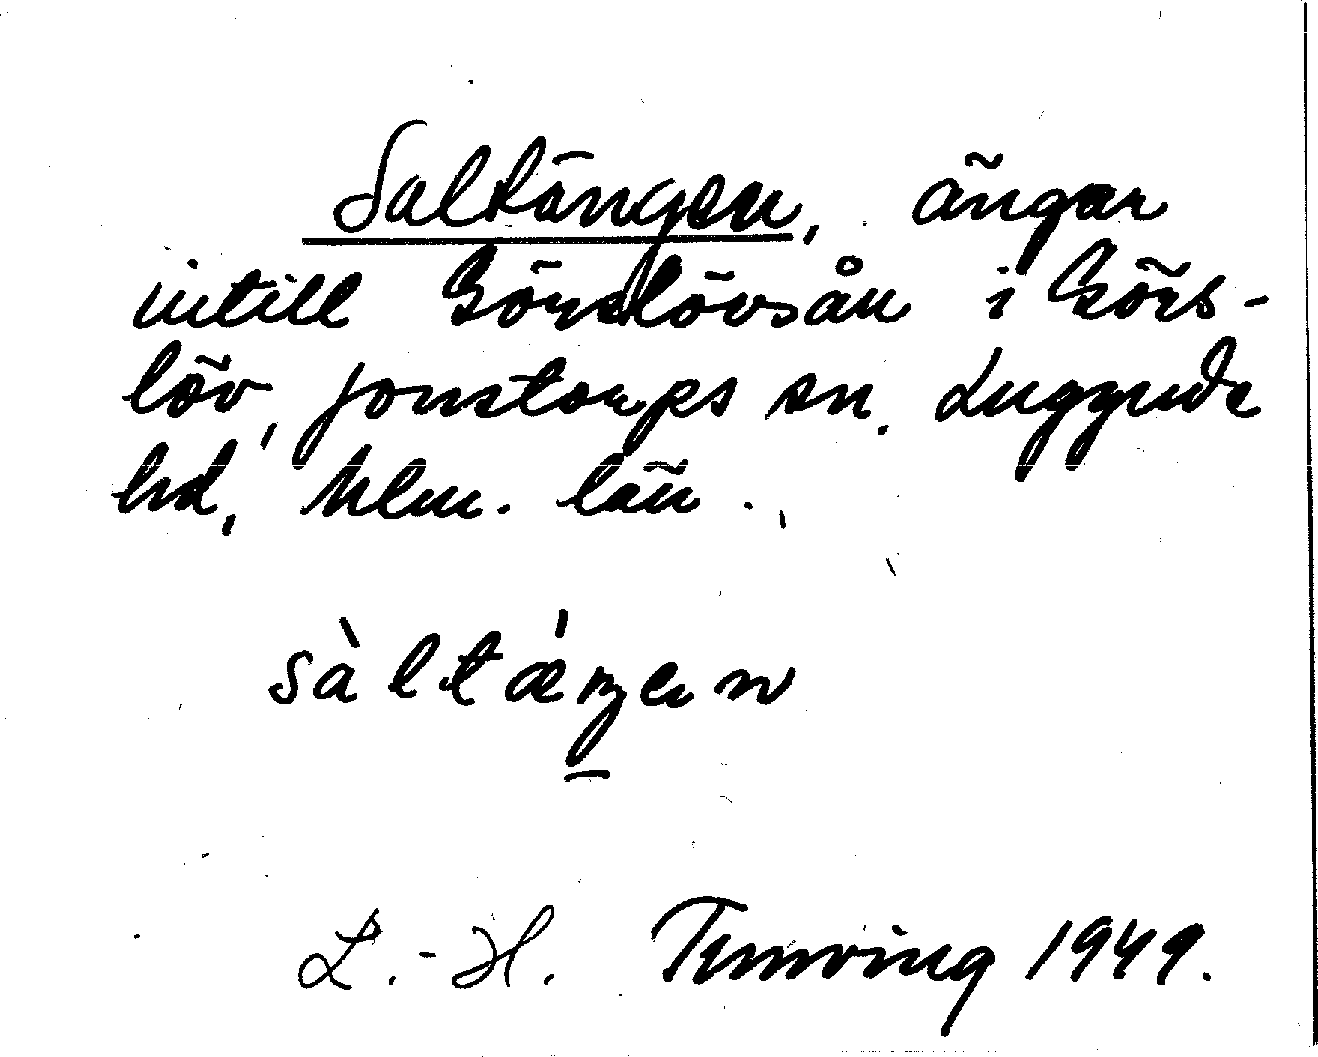 Saltängen, ängar
intill Görslövsån i Görs-
löv, Jonstorps sn. Luggude
hd, Mlm. län.
sàltǽŋen
L.-H. Tunving 1949.